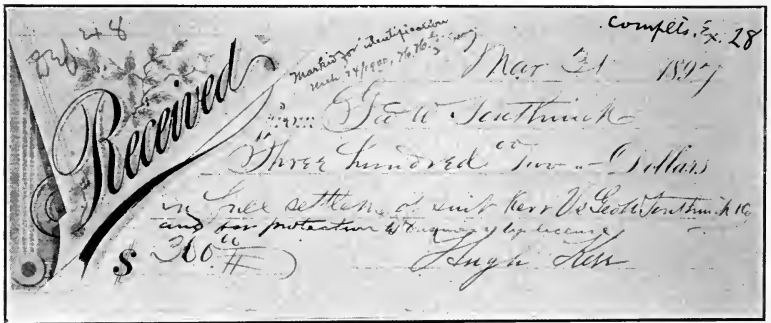 Complts. Ex. 28
Marked for identification
Received
Mar 31 1897
from Geo W Southwick
Three hundred Dollars
in full settlem. of suit Kerr Vs Geo W Southwick &c
and for protection by license
$ 300
Hugh Kerr